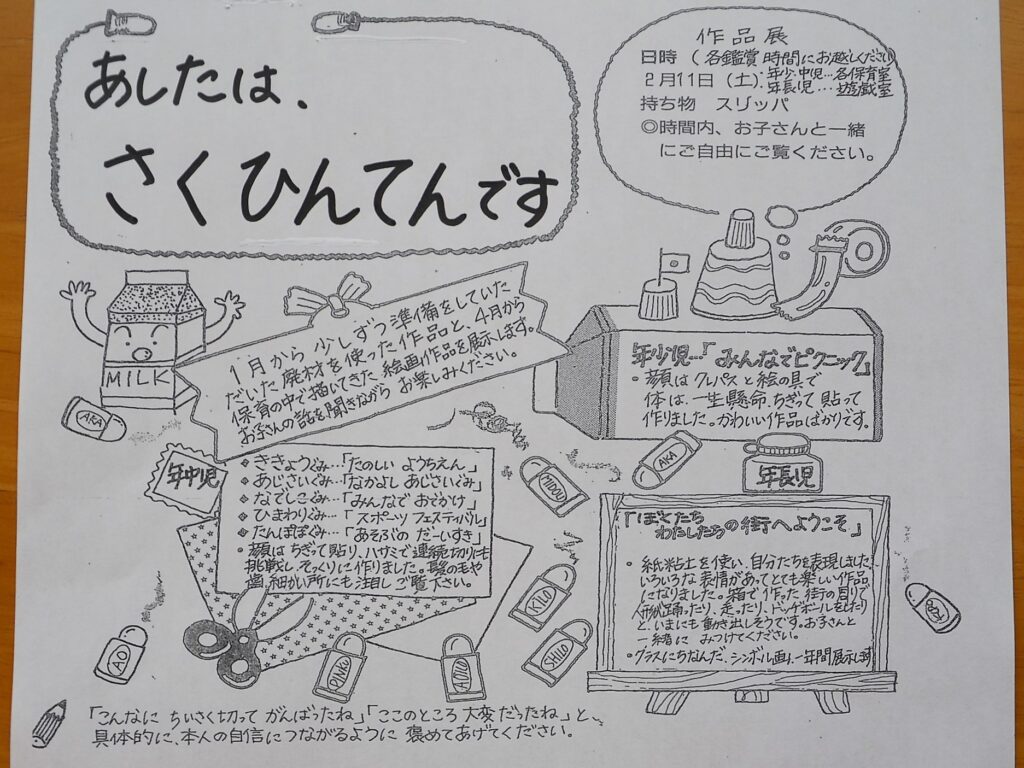 あしたは、
さくひんてんです
作品展
日時 (各鑑賞時間にお越しください)
2月11日(土):年少・中児…各保育室
年長児…遊戯室
持ち物 スリッパ
◎時間内、お子さんと一緒
にご自由にご覧ください。
MILK
1月から 少しずつ準備をしていた
だいた 廃材を使った作品と、4月から
保育の中で描いてきた 絵画作品を展示します。
お子さんの話を聞きながら お楽しみください。
年少児…「みんなでピクニック」
・顔はクレパスと絵の具で
体は、一生懸命、ちぎって貼って
作りました。かわいい作品ばかりです。
AKA
AKA
MIDOLI
年中児
❖ききょうぐみ…「たのしい ようちえん」
❖あじさいぐみ…「なかよし あじさいぐみ」
❖なでしこぐみ…「みんなで おでかけ」
❖ひまわりぐみ…「スポーツ フェスティバル」
❖たんぽぽぐみ…「あそぶの だーいすき」
・顔は ちぎって貼り、ハサミで連続切りにも
挑戦し そっくりに作りました。髪の毛や
歯、細かい所にも注目し ご覧下さい。
年長児
「ぼくたち
わたしたちの街へようこそ」
・紙粘土を使い、自分たちを表現しました。
いろいろな表情があってとても楽しい作品
になりました。箱で作った 街の回りで
人形が踊ったり、走ったり、ドッヂボールをしたり
と、いまにも動き出しそうです。お子さんと
一緒に みつけてください。
・クラスにちなんだ、シンボル画は、一年間展示します
AO
PINKU
KIILO
SHILO
「こんなに ちいさく切って がんばったね」「ここのところ 大変だったね」と、
具体的に、本人の自信につながるように 褒めてあげてください。